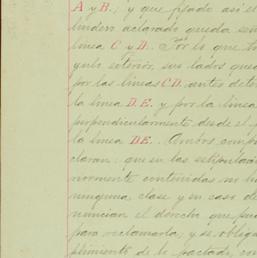 A y B.; y que fijado así el
lindero aclarado queda
linea C y D. Por lo que
exterior, sus lados
por las lineas CD, antes
la linea D.E. y por la linea
perpendicularmente desde el
la linea DE. Ambos
claran: que en las
normente contenidas no
ninguna clase y en caso de
nuncian el derecho que
para reclamarla; y se
plimiento de lo pactado, con